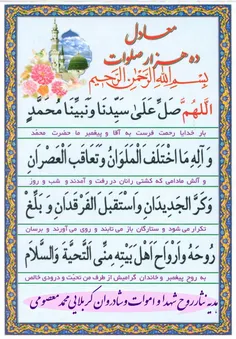 معادل
ده هزار صلوات
بِسْمِ اللهِ الرَّحْمٰنِ الرَّحِيمِ
اَللّٰهُمَّ صَلِّ عَلىٰ سَيِّدِنَا وَنَبِيِّنَا مُحَمَّدٍ
بار خدایا رحمت فرست به آقا و پیغمبر ما حضرت محمد
وَ آلِهِ مَا اخْتَلَفَ الْمَلَوَانِ وَتَعَاقَبَ الْعَصْرَانِ
و آلش مادامی که کشتی رانان در رفت و آمدند و شب و روز
وَكَرَّ الْجَدِيدَانِ وَاسْتَقْبَلَ الْفَرْقَدَانِ وَ بَلِّغْ
گردند و ستارگان باز می تابند و روی می آورند و برسان
رُوحَهُ وَاَرْوَاحَ اَهْلِ بَيْتِهِ مِنِّى التَّحِيَّةَ وَالسَّلَامَ
به روح پیغمبر و خاندان گرامیش از طرف من تحیت و درودی خالص
هدیه نثار روح شهدا و اموات و شادروان کربلایی محمد معصومی